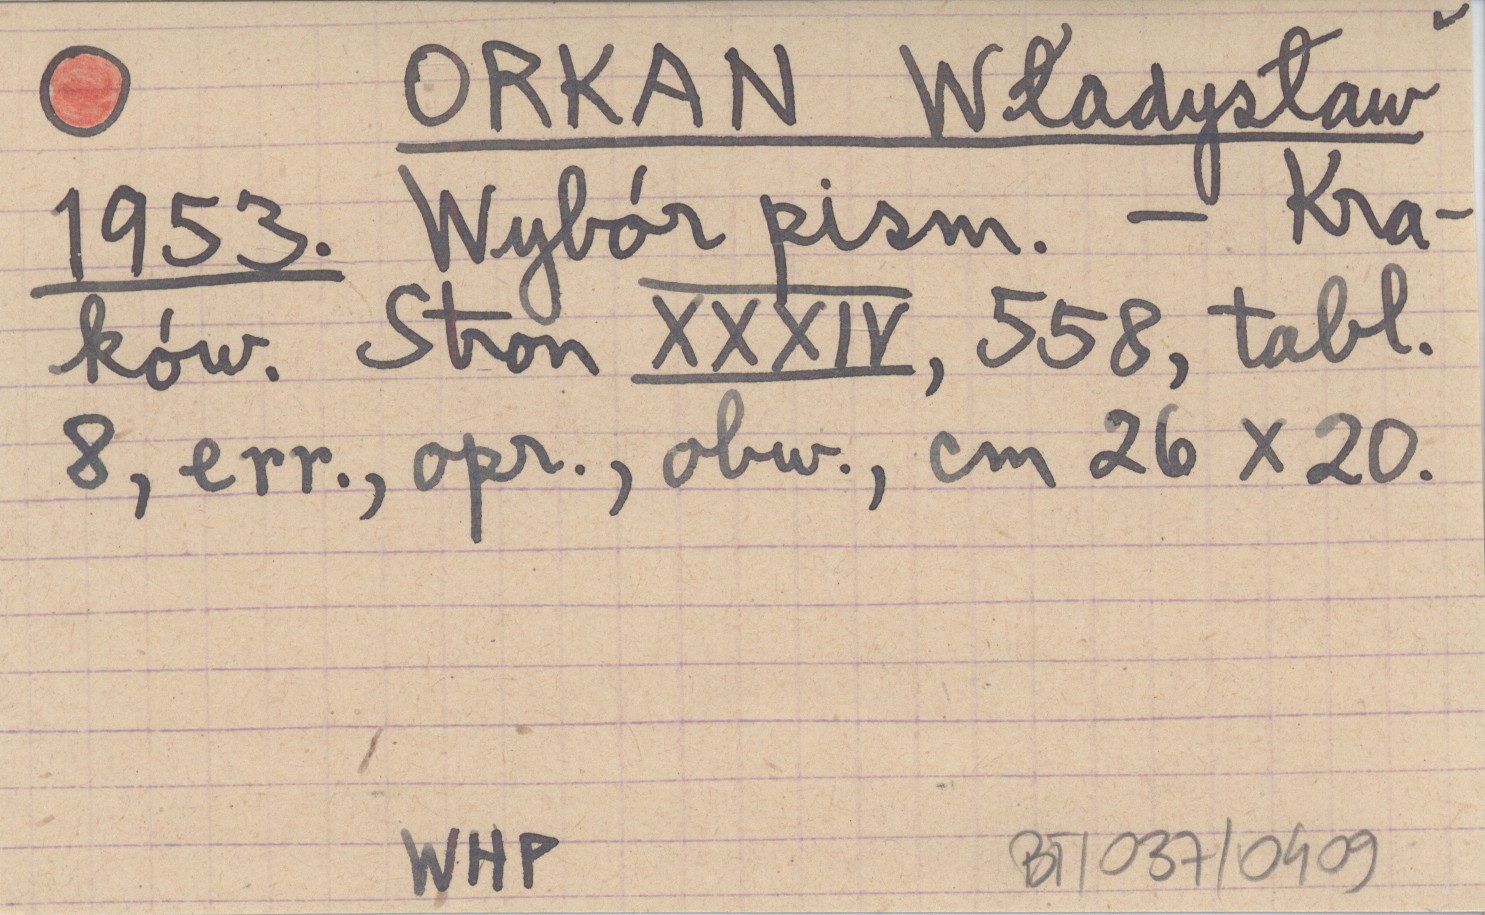 ORKAN Władysław
1953. Wybór pism. – Kra-
ków. Stron XXXIV, 558, tabl.
8, err., opr., obw., cm 26 x 20.
WHP BT/037/0409